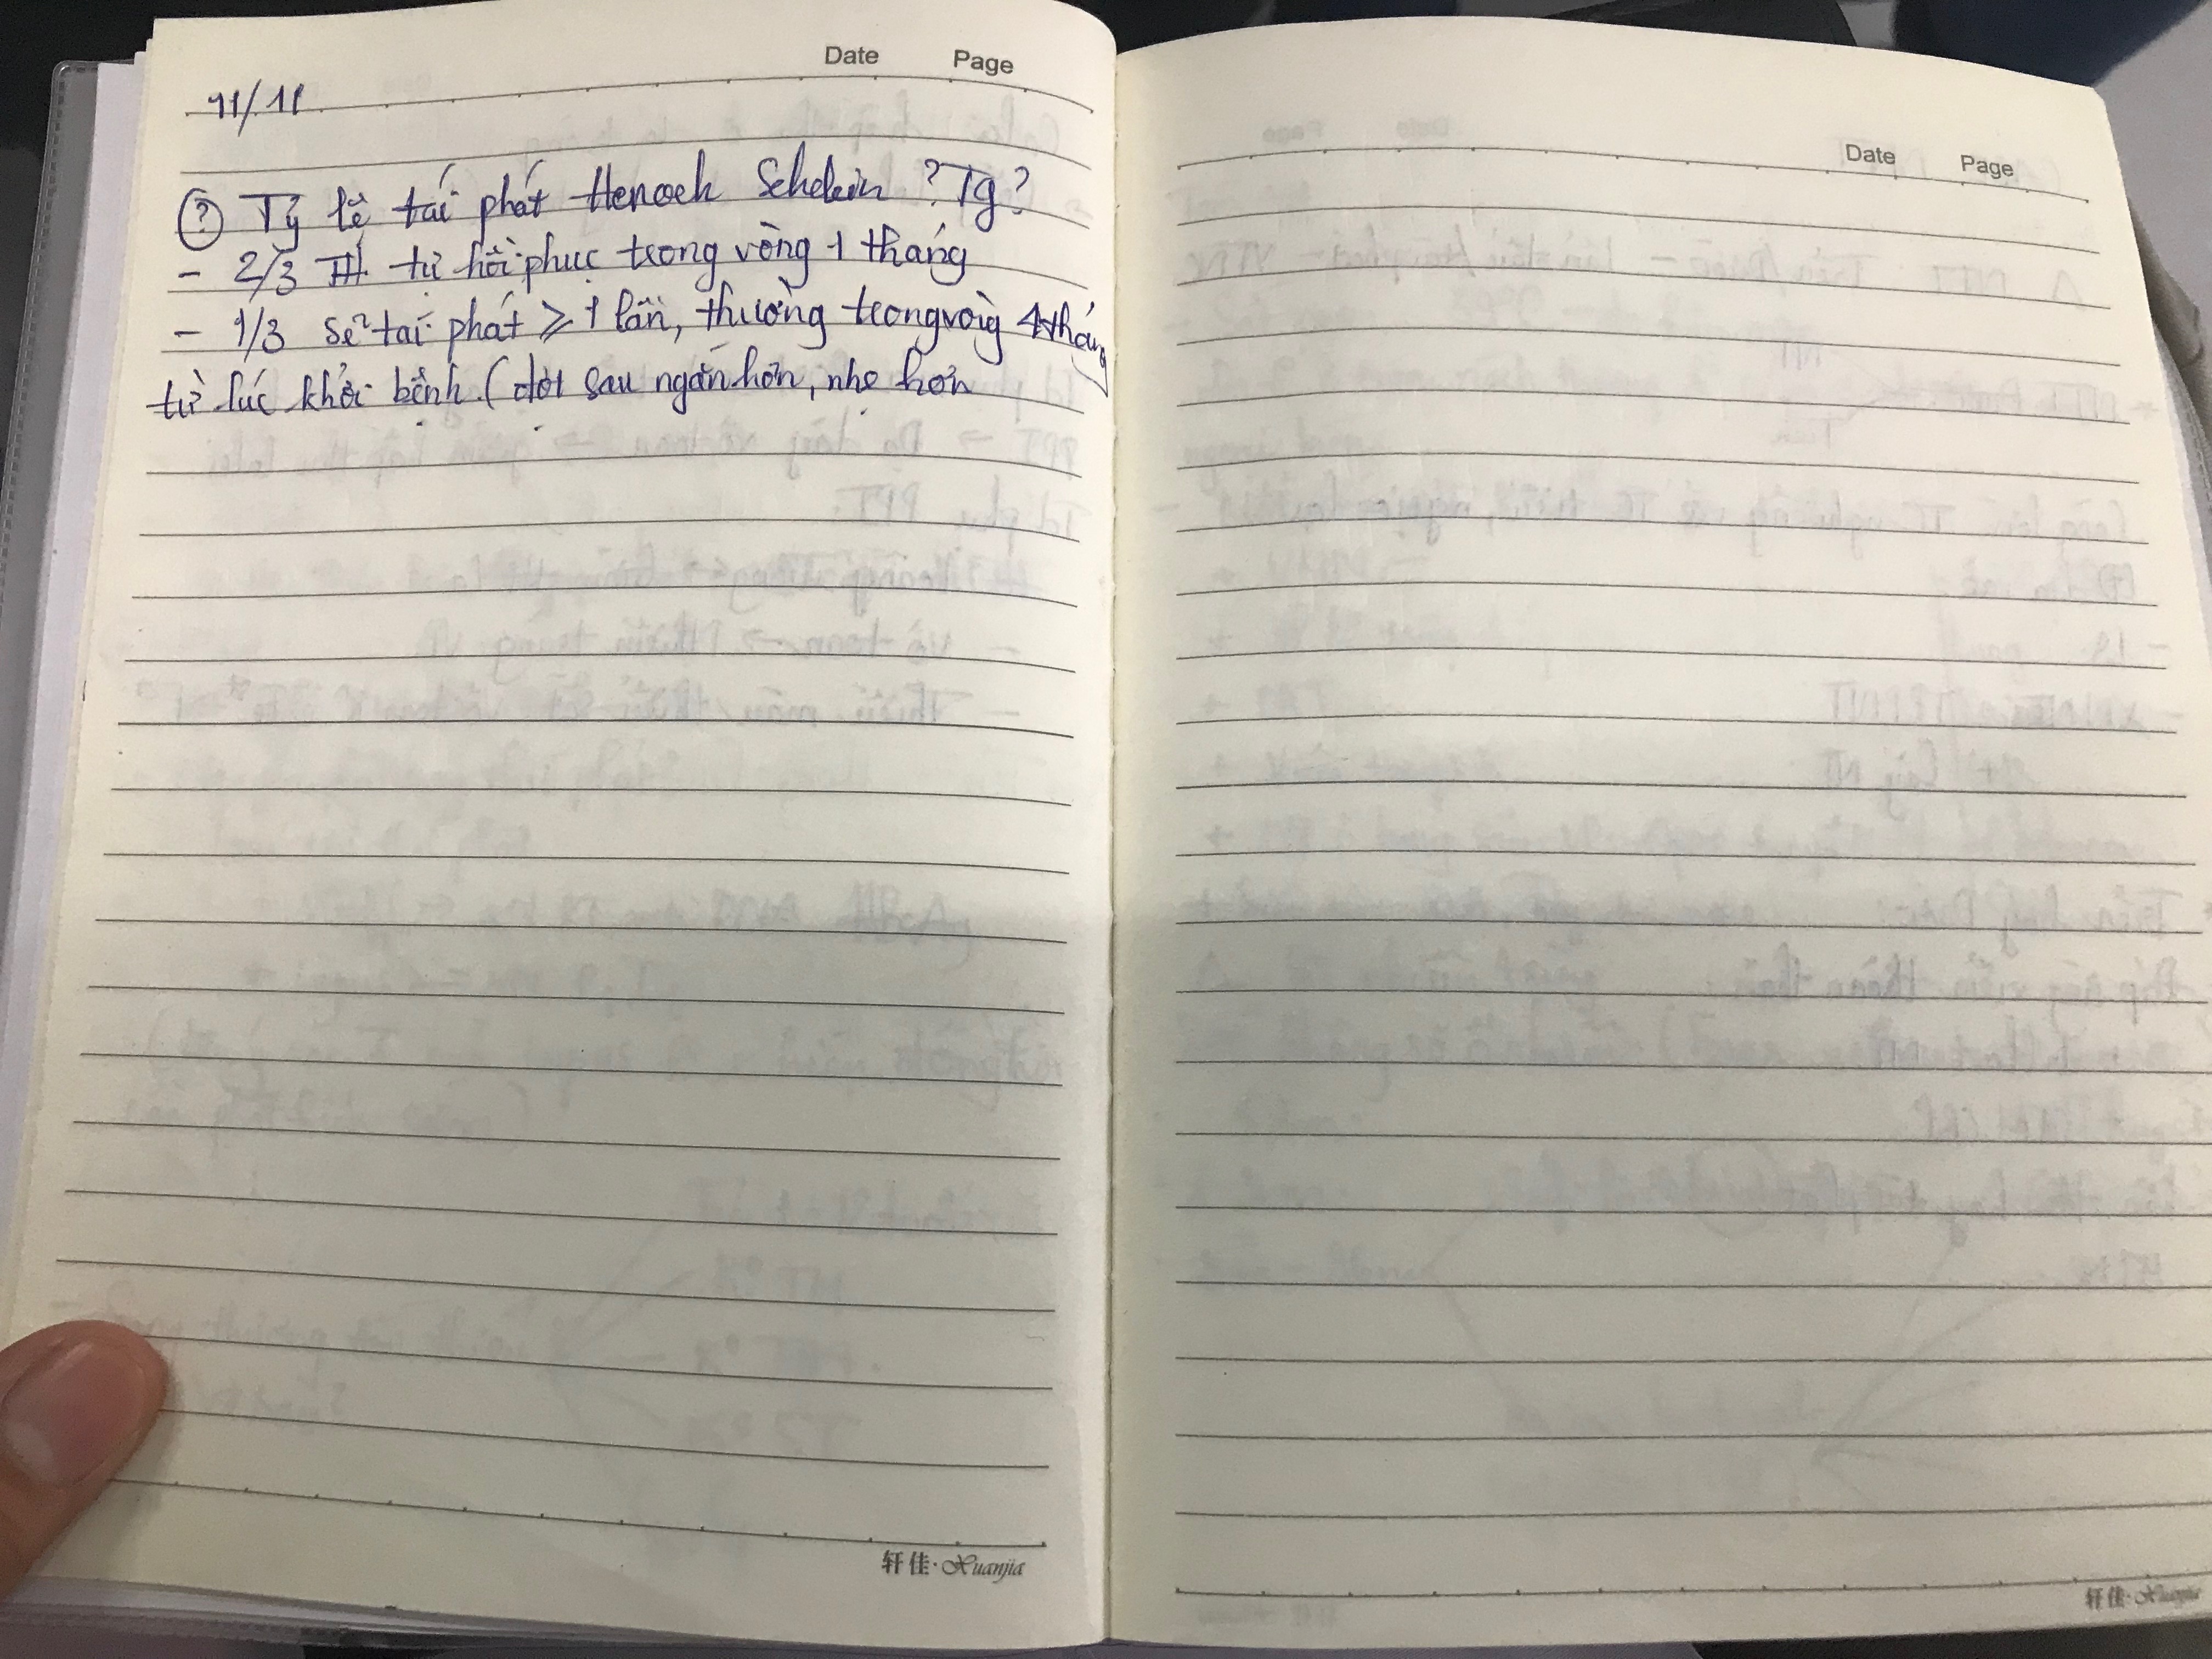 Date Page
11/11
? Tỷ lệ tái phát Henoch Scholein ? Tg?
- 2/3 TH tự hồi phục trong vòng 1 tháng
- 1/3 sẽ tái phát ≥ 1 lần, thường trong vòng 4 tháng
từ lúc khởi bệnh (đợt sau ngắn hơn, nhẹ hơn
轩佳·Xuanjia
Date Page
轩佳·Xuanjia